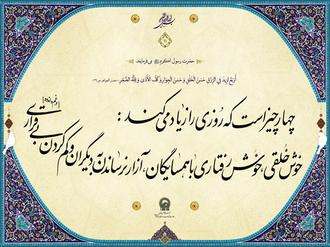 حضرت رسول اکرم (ص) می فرمایند:
أربَعٌ تَزیدُ فِی الرِّزقِ: حُسنُ الخُلُقِ وَ حُسنُ الجِوارِ وَ کَفُّ الأذی وَ قِلَّةُ الضَّجَرِ
چهار چیز است که روزی را زیاد می کند:
خوش خُلقی، خوش رفتاری با همسایگان، آزار نرساندن به دیگران و کم کردن بی قراری